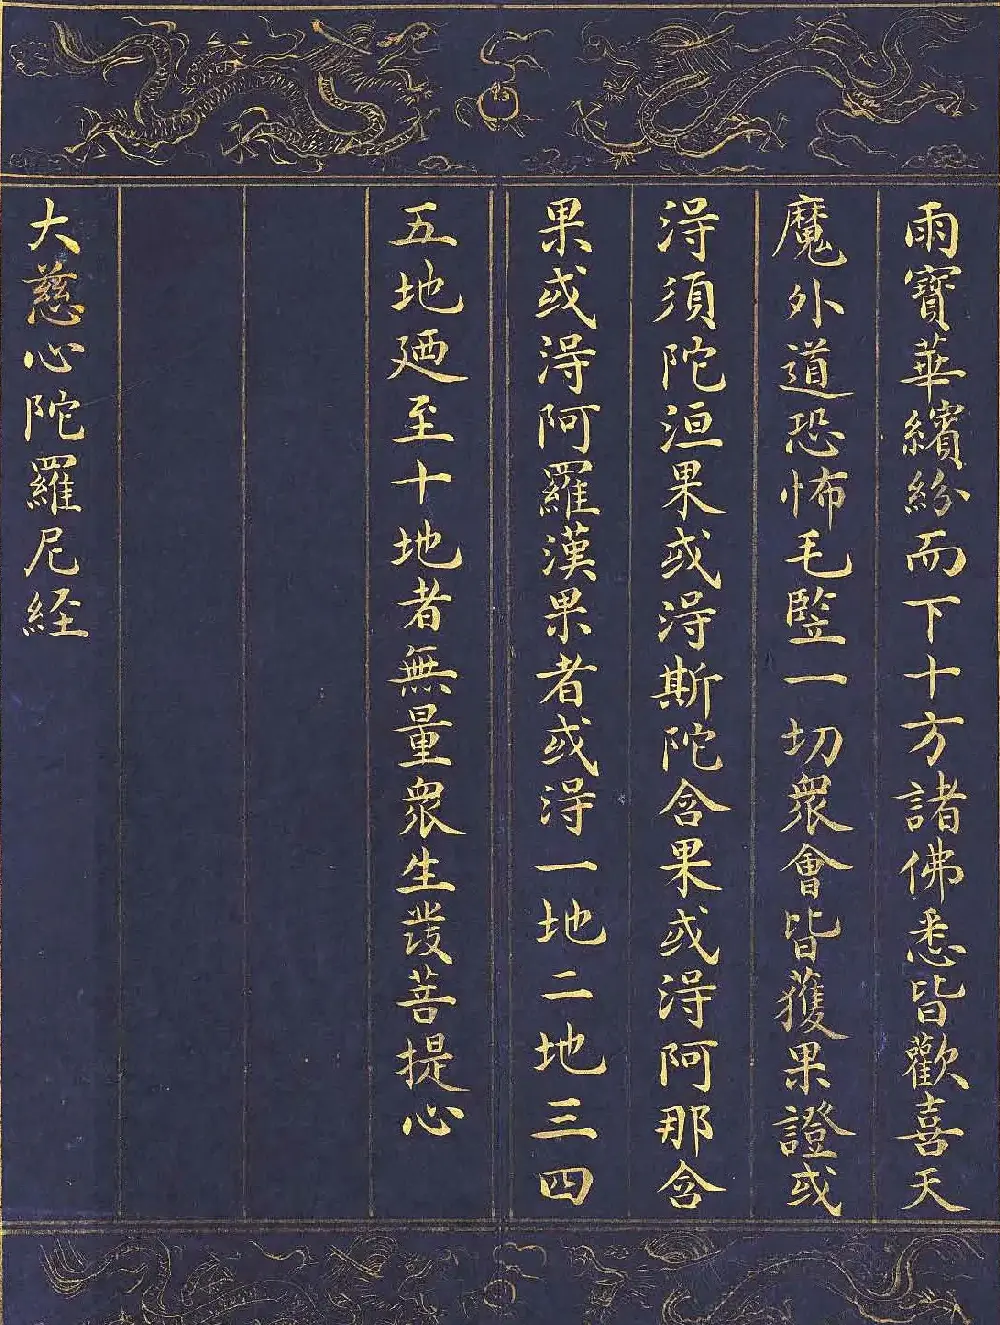 雨寶華繽紛而下十方諸佛悉皆歡喜天
魔外道恐怖毛竪一切衆會皆獲果證或
淂須陀洹果或淂斯陀含果或淂阿那含
果或淂阿羅漢果者或淂一地二地三四
五地廼至十地者無量衆生發菩提心
大慈心陀羅尼経